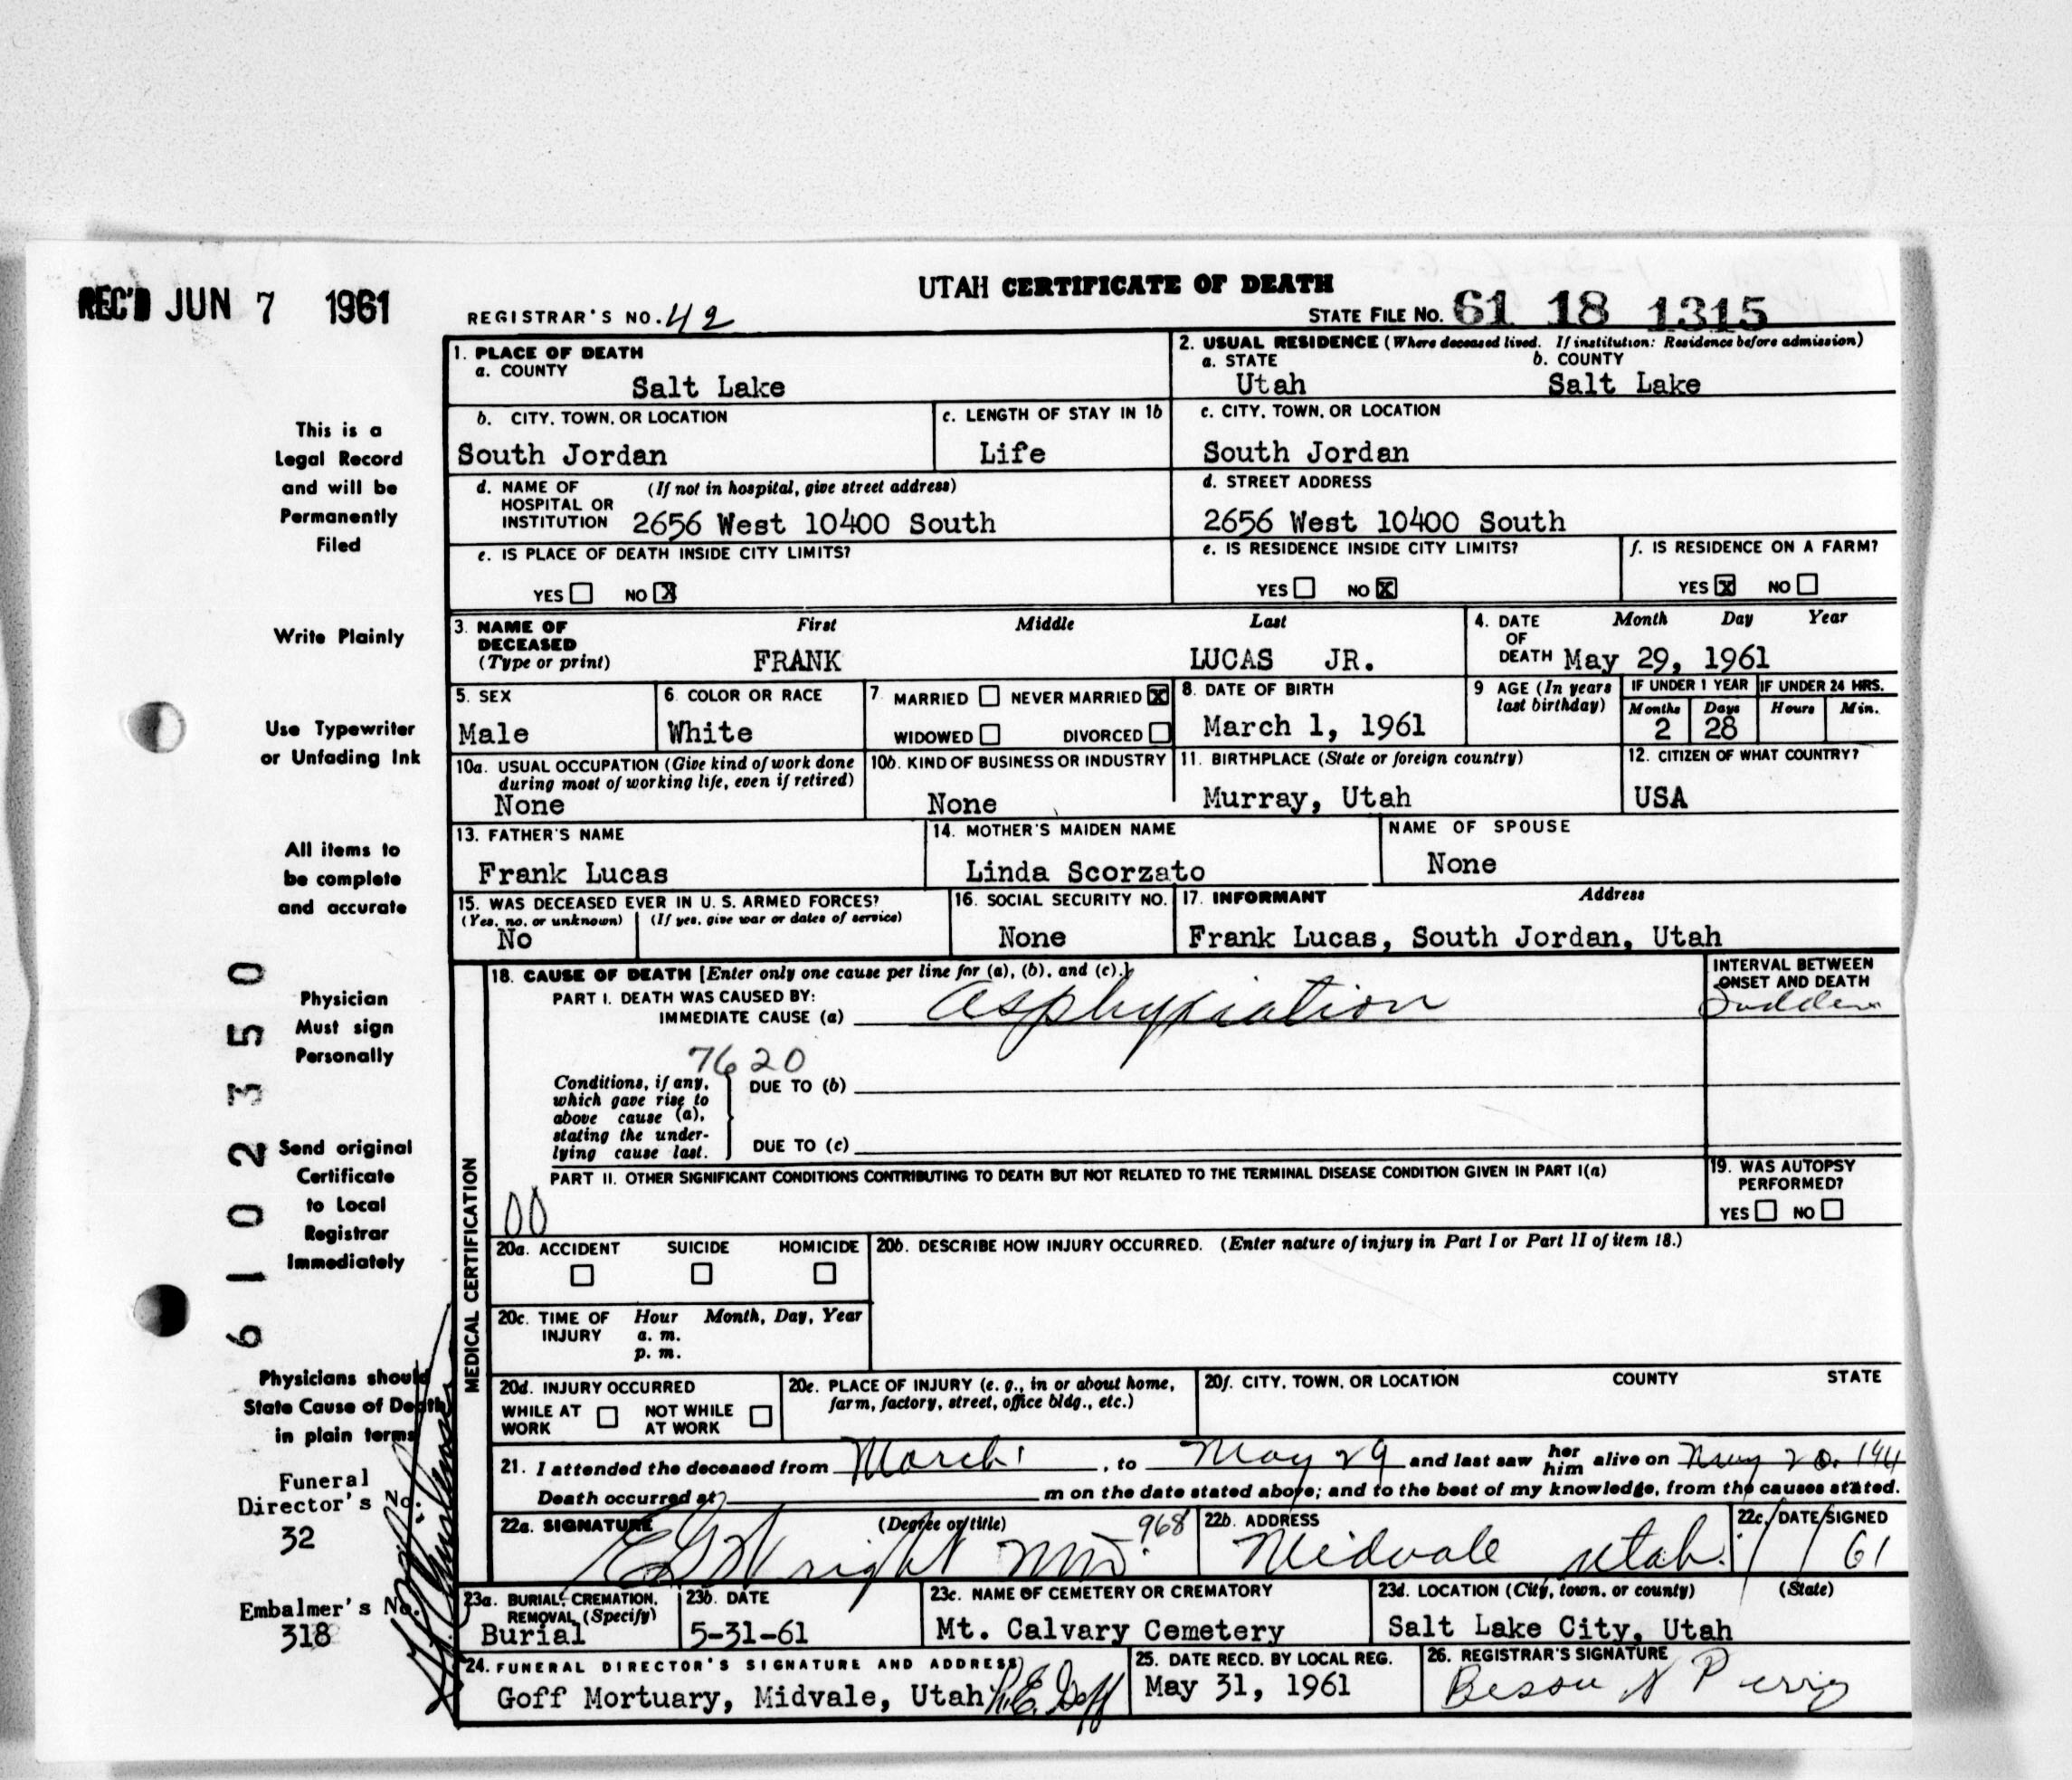 UTAH CERTIFICATE OF DEATH
REC'D JUN 7 1961
REGISTRAR'S NO. 42
STATE FILE NO. 61 18 1315
1. PLACE OF DEATH
a. COUNTY
Salt Lake
2. USUAL RESIDENCE (Where deceased lived. If institution: Residence before admission)
a. STATE b. COUNTY
Utah Salt Lake
b. CITY, TOWN, OR LOCATION
South Jordan
c. LENGTH OF STAY IN 1b
Life
c. CITY, TOWN, OR LOCATION
South Jordan
d. NAME OF (If not in hospital, give street address)
HOSPITAL OR
INSTITUTION 2656 West 10400 South
d. STREET ADDRESS
2656 West 10400 South
e. IS PLACE OF DEATH INSIDE CITY LIMITS?
YES NO X
e. IS RESIDENCE INSIDE CITY LIMITS?
YES NO X
f. IS RESIDENCE ON A FARM?
YES X NO
3. NAME OF First Middle Last
DECEASED
(Type or print) FRANK LUCAS JR.
4. DATE Month Day Year
OF
DEATH May 29, 1961
5. SEX
Male
6. COLOR OR RACE
White
7. MARRIED NEVER MARRIED X
WIDOWED DIVORCED
8. DATE OF BIRTH
March 1, 1961
9 AGE (In years
last birthday)
IF UNDER 1 YEAR IF UNDER 24 HRS.
Months Days Hours Min.
2 28
10a. USUAL OCCUPATION (Give kind of work done
during most of working life, even if retired)
None
10b. KIND OF BUSINESS OR INDUSTRY
None
11. BIRTHPLACE (State or foreign country)
Murray, Utah
12. CITIZEN OF WHAT COUNTRY?
USA
13. FATHER'S NAME
Frank Lucas
14. MOTHER'S MAIDEN NAME
Linda Scorzato
NAME OF SPOUSE
None
15. WAS DECEASED EVER IN U. S. ARMED FORCES?
(Yes, no, or unknown) (If yes, give war or dates of service)
No
16. SOCIAL SECURITY NO.
None
17. INFORMANT Address
Frank Lucas, South Jordan, Utah
MEDICAL CERTIFICATION
18. CAUSE OF DEATH [Enter only one cause per line for (a), (b), and (c).]
PART I. DEATH WAS CAUSED BY:
IMMEDIATE CAUSE (a) Asphyxiation
INTERVAL BETWEEN
ONSET AND DEATH
Sudden
7620
Conditions, if any,
which gave rise to
above cause (a),
stating the under-
lying cause last.
DUE TO (b)
DUE TO (c)
PART II. OTHER SIGNIFICANT CONDITIONS CONTRIBUTING TO DEATH BUT NOT RELATED TO THE TERMINAL DISEASE CONDITION GIVEN IN PART I(a)
00
19. WAS AUTOPSY
PERFORMED?
YES NO
20a. ACCIDENT SUICIDE HOMICIDE
20b. DESCRIBE HOW INJURY OCCURRED. (Enter nature of injury in Part I or Part II of item 18.)
20c. TIME OF Hour Month, Day, Year
INJURY a. m.
p. m.
20d. INJURY OCCURRED
WHILE AT NOT WHILE
WORK AT WORK
20e. PLACE OF INJURY (e. g., in or about home,
farm, factory, street, office bldg., etc.)
20f. CITY, TOWN, OR LOCATION COUNTY STATE
21. I attended the deceased from March 1, to May 29 and last saw her him alive on May 20,
Death occurred at m on the date stated above; and to the best of my knowledge, from the causes stated.
22a. SIGNATURE (Degree or title) 968
E G Wright MD.
22b. ADDRESS
Midvale Utah.
22c. DATE SIGNED
/ / 61
23a. BURIAL, CREMATION,
REMOVAL (Specify)
Burial
23b. DATE
5-31-61
23c. NAME OF CEMETERY OR CREMATORY
Mt. Calvary Cemetery
23d. LOCATION (City, town, or county) (State)
Salt Lake City, Utah
24. FUNERAL DIRECTOR'S SIGNATURE AND ADDRESS
Goff Mortuary, Midvale, Utah R.E. Goff
25. DATE RECD. BY LOCAL REG.
May 31, 1961
26. REGISTRAR'S SIGNATURE
This is a
Legal Record
and will be
Permanently
Filed
Write Plainly
Use Typewriter
or Unfading Ink
All items to
be complete
and accurate
Physician
Must sign
Personally
Send original
Certificate
to Local
Registrar
Immediately
Physicians should
State Cause of Death
in plain terms
Funeral
Director's No.
32
Embalmer's No.
318
6102350